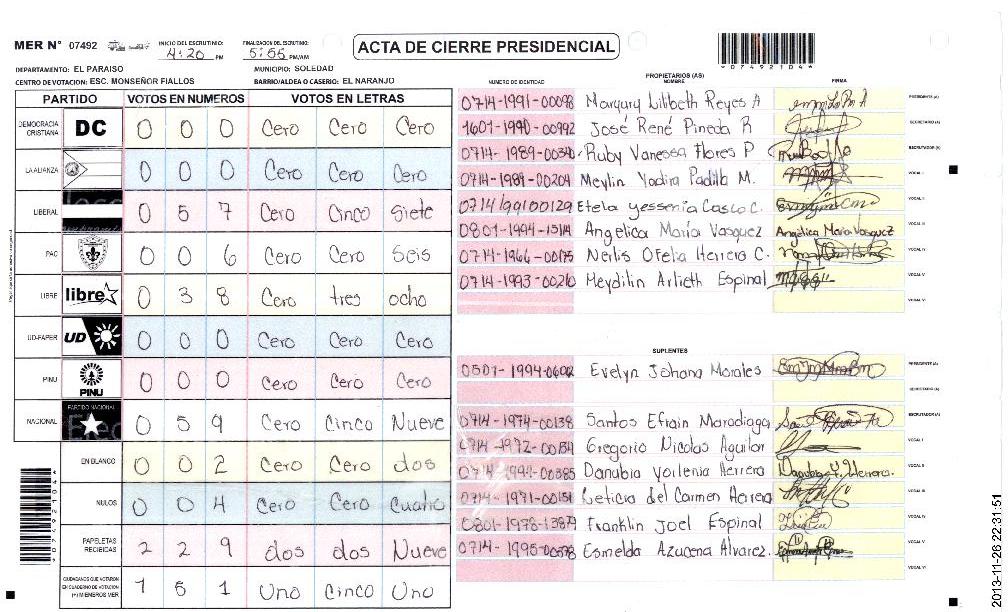 MER N° 07492
INICIO DEL ESCRUTINIO: 4:20 PM
FINALIZACION DEL ESCRUTINIO: 5:55 PM/AM
ACTA DE CIERRE PRESIDENCIAL
*07492104*
DEPARTAMENTO: EL PARAISO
MUNICIPIO: SOLEDAD
CENTRO DE VOTACION: ESC. MONSEÑOR FIALLOS
BARRIO/ALDEA O CASERIO: EL NARANJO
PARTIDO VOTOS EN NUMEROS VOTOS EN LETRAS
DEMOCRACIA CRISTIANA DC 0 0 0 Cero Cero Cero
LA ALIANZA 0 0 0 Cero Cero Cero
LIBERAL 0 5 7 Cero Cinco Siete
PAC 0 0 6 Cero Cero Seis
LIBRE libre 0 3 8 Cero tres ocho
UD-FAPER UD 0 0 0 Cero Cero Cero
PINU PINU 0 0 0 Cero Cero Cero
NACIONAL PARTIDO NACIONAL 0 5 9 Cero Cinco Nueve
EN BLANCO 0 0 2 Cero Cero dos
NULOS 0 0 4 Cero Cero Cuatro
PAPELETAS RECIBIDAS 2 2 9 dos dos Nueve
CIUDADANOS QUE VOTARON EN CUADERNO DE VOTACION (+) MIEMBROS MER 1 5 1 Uno Cinco Uno
*07492104*
NUMERO DE IDENTIDAD PROPIETARIOS (AS) NOMBRE FIRMA
0714-1991-00098 Margury Lilibeth Reyes A PRESIDENTE (A)
1601-1990-00992 José René Pineda R SECRETARIO (A)
0714-1989-00340 Ruby Vanessa Flores P ESCRUTADOR (A)
0714-1989-00204 Meylin Yadira Padilla M. VOCAL I
0714199100129 Etela yessenia Casco C. VOCAL II
0801-1994-15114 Angelica María Vasquez Angélica María Vasquez VOCAL III
0714-1966-00175 Nerlis Ofelia Herrera C. VOCAL IV
0714-1993-00210 Meydilin Arlieth Espinal VOCAL V
VOCAL VI
SUPLENTES
0501-1994-0602 Evelyn Johana Morales PRESIDENTE (A)
SECRETARIO (A)
0714-1974-00138 Santos Efrain Maradiaga ESCRUTADOR (A)
0714-1972-00134 Gregorio Nicolas Aguilar VOCAL I
0714-1994-00385 Danubia Yorlenia Herrera Danubia Y. Herrera. VOCAL II
0714-1971-00151 Leticia del Carmen Herrera VOCAL III
0801-1978-13879 Franklin Joel Espinal VOCAL IV
0714-1995-00598 Esmelda Azucena Alvarez. VOCAL V
VOCAL VI
2013-11-26 22:31:51